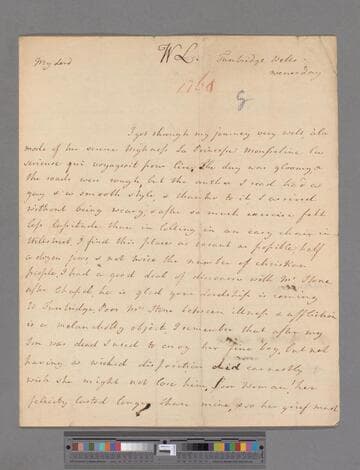 My Lord
W L.
Tunbridge Wells
wensday
1760
I got through my journey very well, à la
mode of her serene Highness La Princesse
curieuse qui voyageoit pour lire, The day was gloomy, &
the roads were rough, but the author I read had a
gay & a smooth style, & thanks to it I arrived
without being weary, & after so much exercise felt
less lassitude than in lolling in an easy chair in
Hillstreet, I find this place as vacant as possible half
a dozen Jews & not twice the number of christian
people, I had a good deal of discourse with Mr Stone
after Chapel, he is glad your Lordship is coming
to Tunbridge, Poor Mrs Stone between illness & affliction
is a melancholly object, I remember that after my
Son was dead I used to envy her fine boy, but not
having a wicked disposition did earnestly
wish she might not lose him, Poor Woman! her
felicity lasted longer than mine, & so her grief must